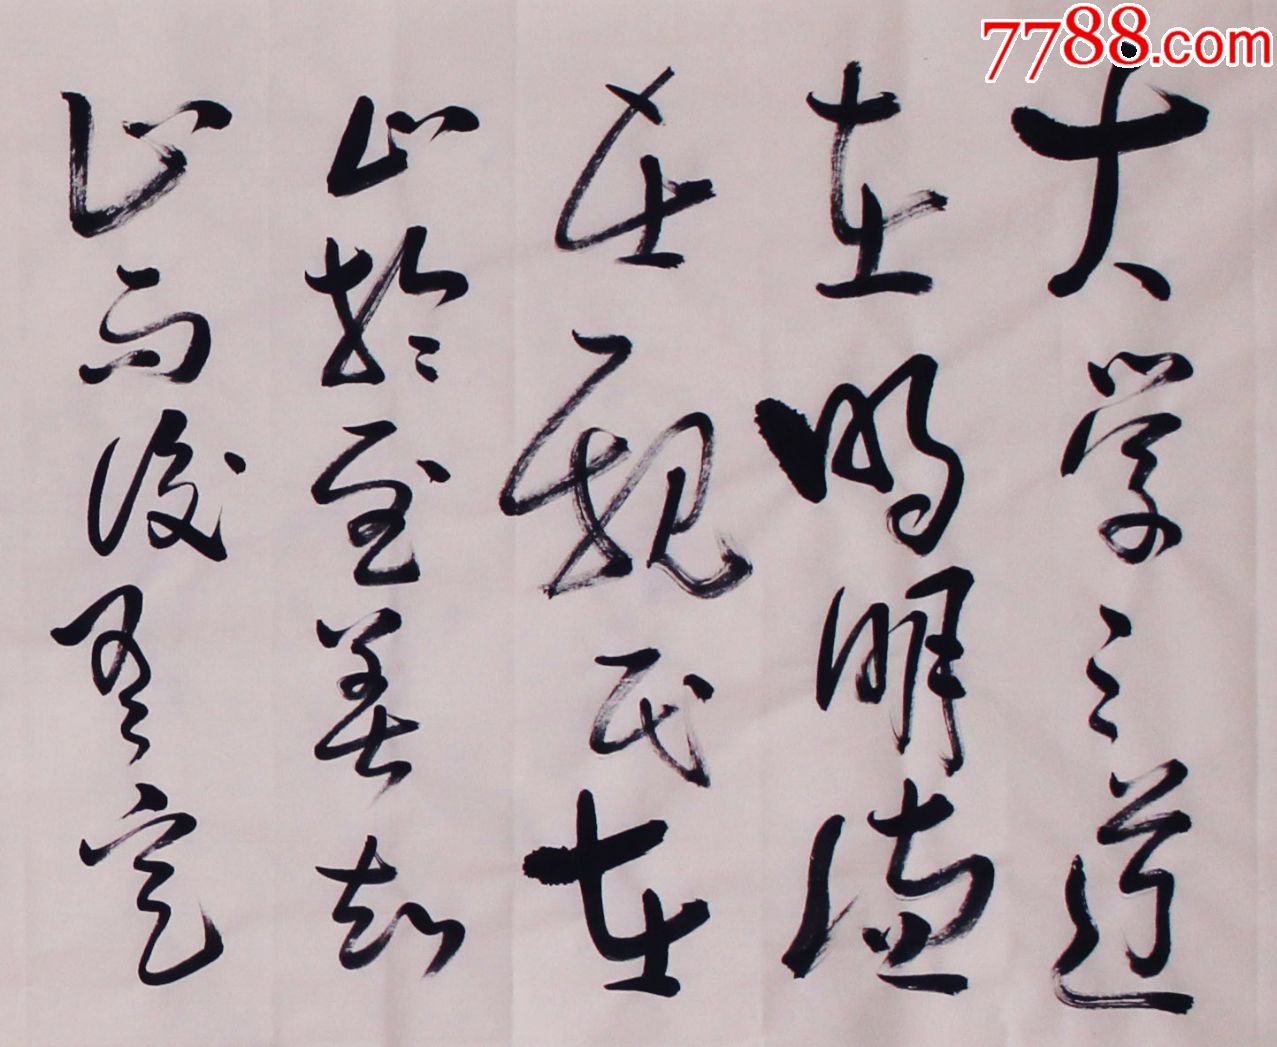 7788.com
大学之道
在明明德
在親民在
止於至善知
止而後有定